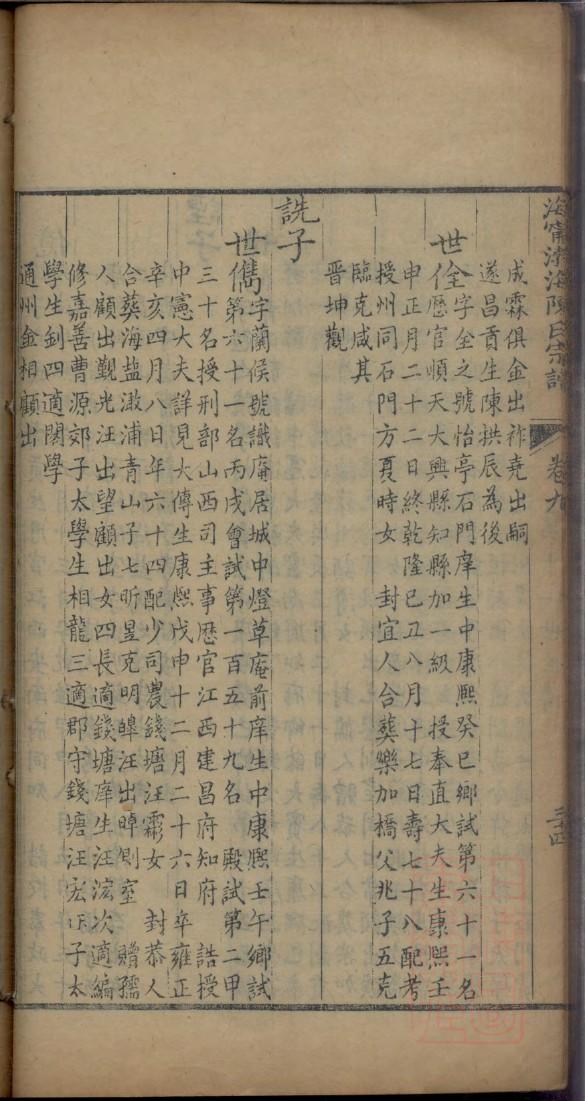 海甯渤海陳氏宗譜
卷九
三十四
成霖俱金出祚堯出嗣
遂昌貢生陳拱辰為後
世佺字全之號怡亭石門庠生中康熙癸巳鄉試第六十一名
歷官順天大興縣知縣加一級 授奉直大夫生康熙壬
申正月二十二日終乾隆己丑八月十七日壽七十八配考
授州同石門方夏時女 封宜人合葬樂加橋父兆子五克
臨克咸其
晉坤觀
詵子
世儁字蘭侯號識庵居城中燈草庵前庠生中康熙壬午鄉試
第六十一名丙戌會試第一百五十九名 殿試第二甲
三十名授刑部山西司主事歷官江西建昌府知府 誥授
中憲大夫詳見大傳生康熙戊申十二月二十六日卒雍正
辛亥四月八日年六十四配少司農錢塘汪霦女 封恭人
合葬海盐澉浦青山子七昕昱克明皞汪出晫側室 贈孺
人顧出覲光汪出望顧出女四長適錢塘庠生汪浤次適編
修嘉善曹源郊子太學生相龍三適郡守錢塘汪宏 子太
學生釗四適閣學
通州金相顧出